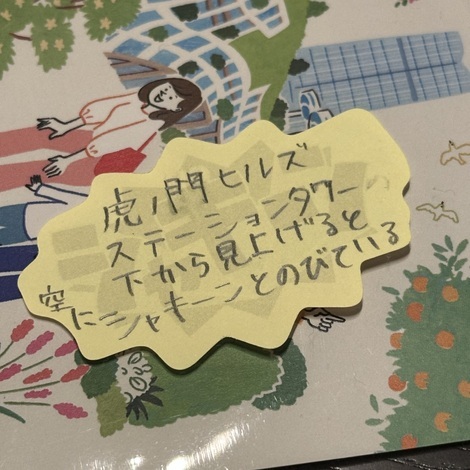 虎ノ門ヒルズ
ステーションタワー
下から見上げると
空にシャキーンとのびている